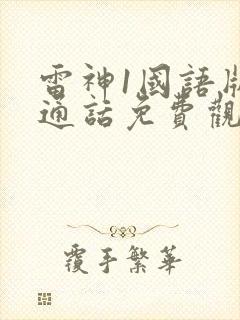 雷神1國語版
通話免費觀
覆手繁華